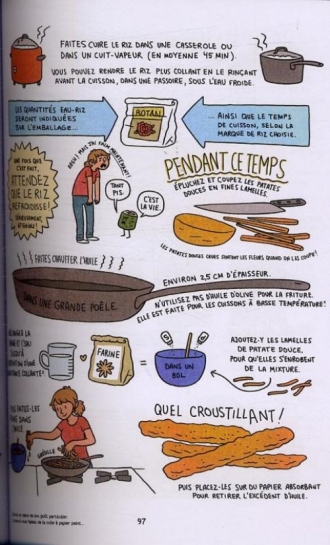 FAITES CUIRE LE RIZ DANS UNE CASSEROLE OU
DANS UN CUIT-VAPEUR. (EN MOYENNE 45 MIN).
VOUS POUVEZ RENDRE LE RIZ PLUS COLLANT EN LE RINÇANT
AVANT LA CUISSON, DANS UNE PASSOIRE, SOUS L'EAU FROIDE.
LES QUANTITÉS EAU-RIZ
SERONT INDIQUÉES
SUR L'EMBALLAGE...
BOTAN
... AINSI QUE LE TEMPS
DE CUISSON, SELON LA
MARQUE DE RIZ CHOISIE.
UNE FOIS QUE
C'EST FAIT,
ATTENDEZ
QUE LE RIZ
REFROIDISSE!
MAIS J'AI FAIM MAINTENANT!
TANT
PIS.
C'EST
LA VIE.
PENDANT CE TEMPS
ÉPLUCHEZ ET COUPEZ LES PATATES
DOUCES EN FINES LAMELLES.
LES PATATES DOUCES CRUES SENTENT LES FLEURS QUAND ON LES COUPE!
FAITES CHAUFFER L'HUILE
DANS UNE GRANDE POÊLE
ENVIRON 2,5 CM D'ÉPAISSEUR.
N'UTILISEZ PAS D'HUILE D'OLIVE POUR LA FRITURE.
ELLE EST FAITE POUR LES CUISSONS À BASSE TEMPÉRATURE!
FARINE
=
DANS UN
BOL
AJOUTEZ-Y LES LAMELLES
DE PATATE DOUCE,
POUR QU'ELLES S'ENROBENT
DE LA MIXTURE.
QUEL CROUSTILLANT!
PUIS PLACEZ-LES SUR DU PAPIER ABSORBANT
POUR RETIRER L'EXCÉDENT D'HUILE.
97